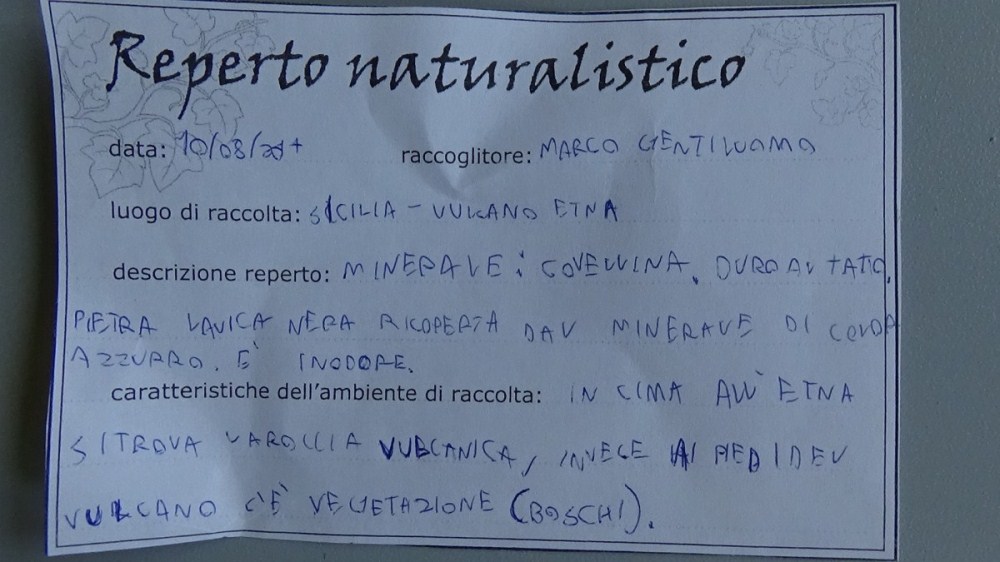 Reperto naturalistico
data: 10/08/ raccoglitore: MARCO GENTILUOMO
luogo di raccolta: SICILIA - VULCANO ETNA
descrizione reperto: MINERALE: COVELLINA. DURO AL TATTO,
PIETRA LAVICA NERA RICOPERTA DAL MINERALE DI COLOR
AZZURRO. E' INODORE.
caratteristiche dell'ambiente di raccolta: IN CIMA ALL'ETNA
SI TROVA LA ROCCIA VULCANICA, INVECE AI PIEDI DEL
VULCANO C'È VEGETAZIONE (BOSCHI).